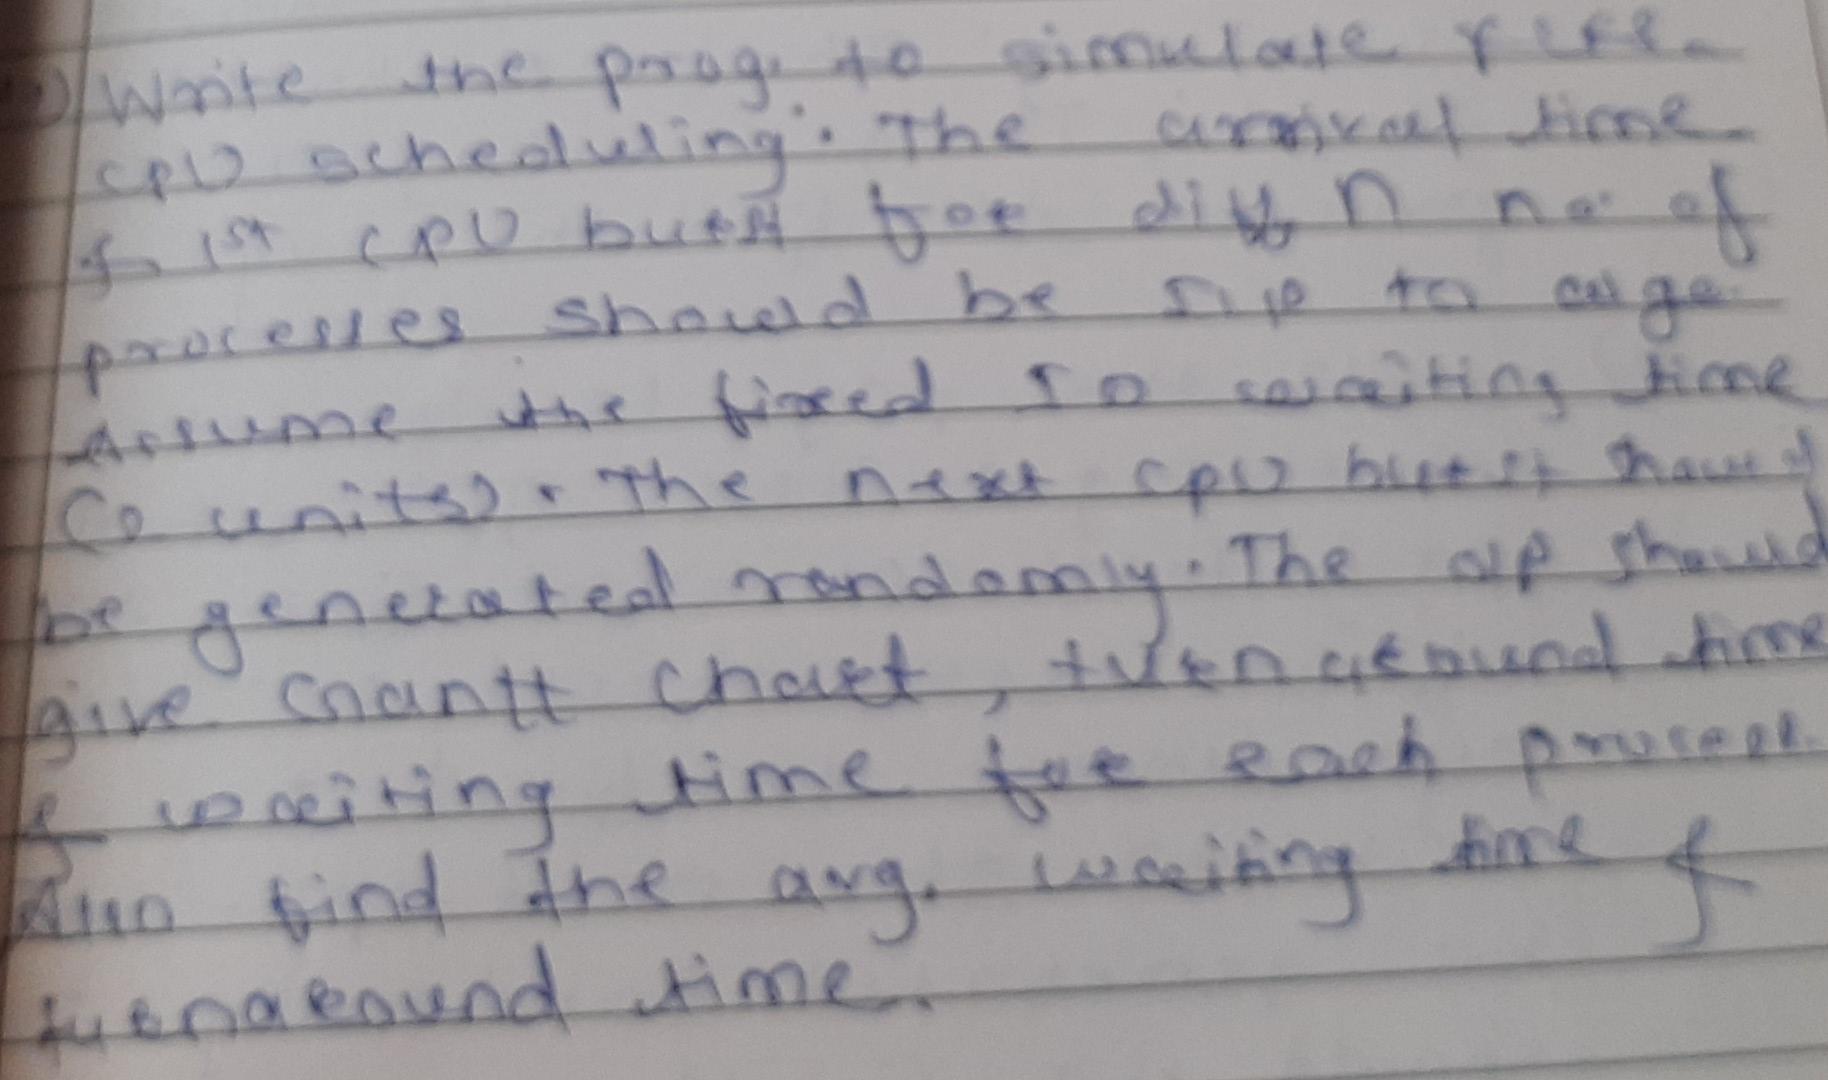 Write the prog. to simulate FCFS
CPU scheduling. The arrival time
& 1st CPU burst for diff n no. of
processes should be I/P to
Assume the fixed IO waiting time
units). The next CPU burst should
be generated randomly. The o/p should
give Gnantt chart, turnaround time
& waiting time for each process.
Also find the avg. waiting time &
turnaround time.